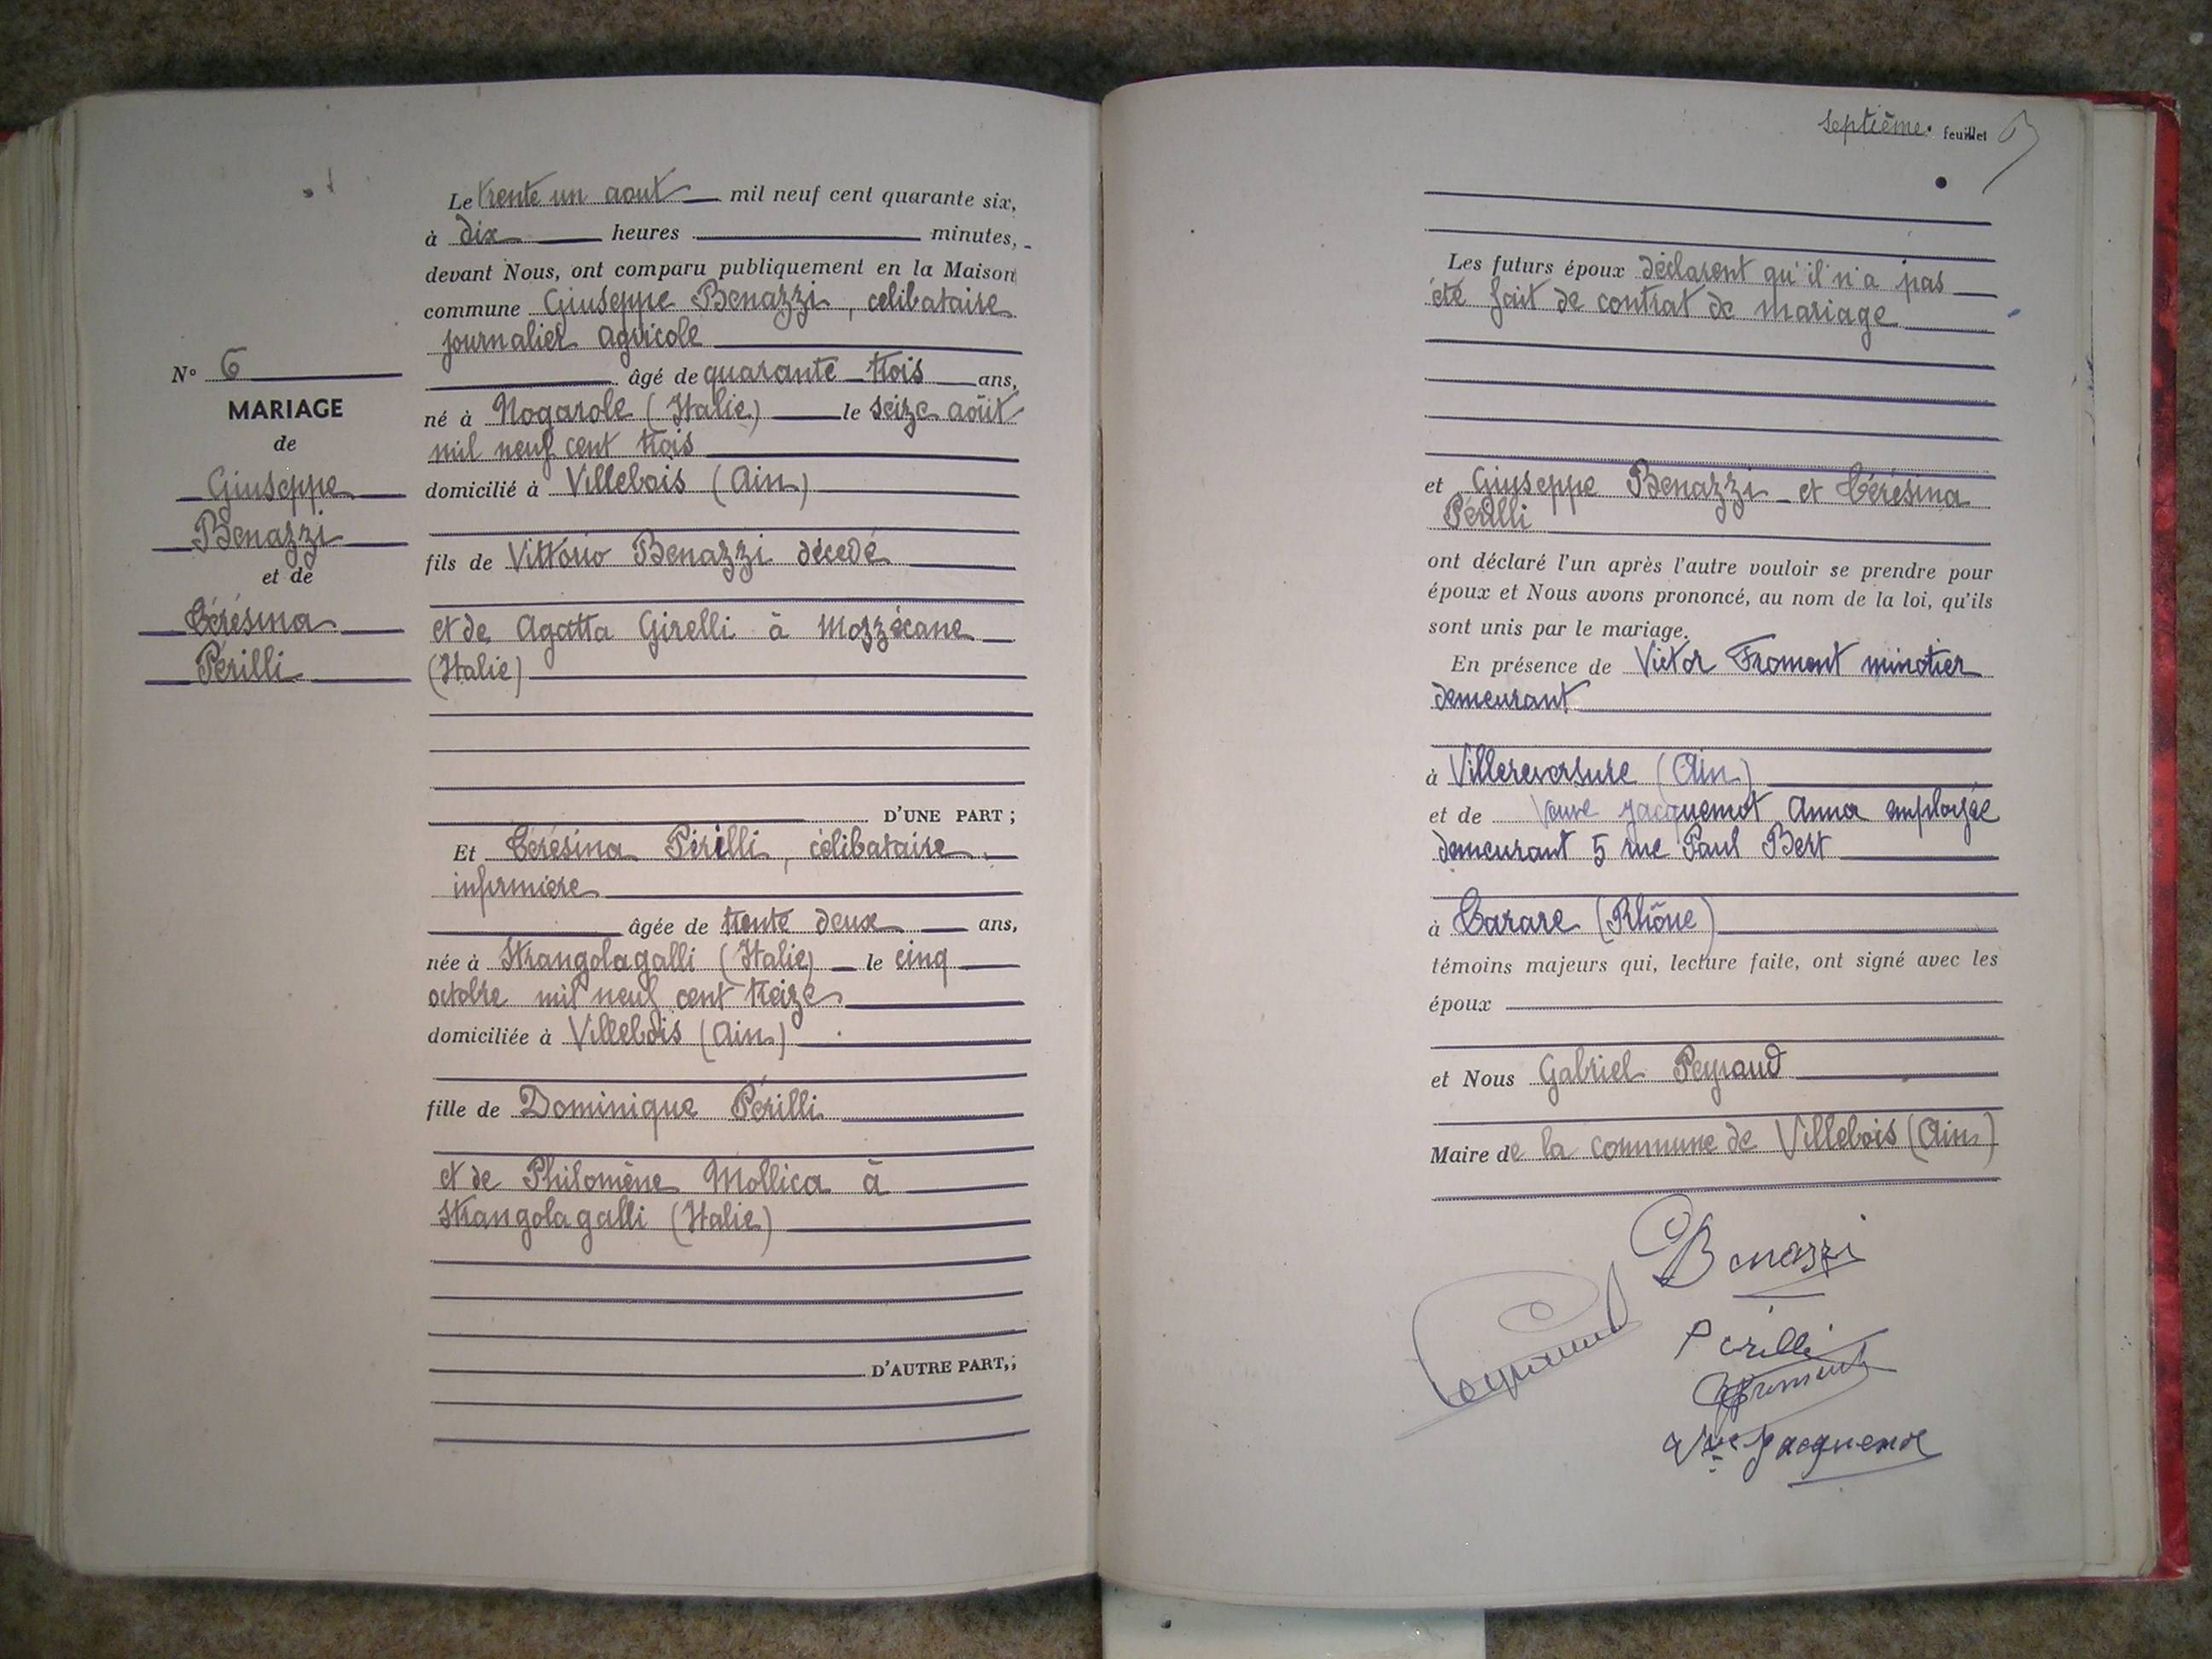 Le trente un aout mil neuf cent quarante six,
à dix heures minutes,
devant Nous, ont comparu publiquement en la Maison
commune Giuseppe Benazzi, célibataire
journalier agricole
âgé de quarante trois ans,
né à Nogarole (Italie) le seize août
mil neuf cent trois
domicilié à Villebois (Ain)
fils de Vittorio Benazzi décedé
et de Agatta Girelli à Mozzécane
(Italie)
D'UNE PART ;
Et Térésina Périlli, célibataire
infirmière
âgée de trente deux ans,
née à Strangolagalli (Italie) le cinq
octobre mil neuf cent treize
domiciliée à Villebois (Ain)
fille de Dominique Périlli
et de Philomène Mollica à
Strangolagalli (Italie)
D'AUTRE PART,;
N° 6
MARIAGE
de
Giuseppe
Benazzi
et de
Térésina
Périlli
septième feuillet
Les futurs époux déclarent qu'il n'a pas
été fait de contrat de mariage
et Giuseppe Benazzi et Térésina
Périlli
ont déclaré l'un après l'autre vouloir se prendre pour
époux et Nous avons prononcé, au nom de la loi, qu'ils
sont unis par le mariage.
En présence de Victor Froment minotier
demeurant
à Villereversure (Ain)
et de Veuve Jacquemot Anna employée
demeurant 5 rue Paul Bert
à Tarare (Rhône)
témoins majeurs qui, lecture faite, ont signé avec les
époux
et Nous Gabriel Peyraud
Maire de la commune de Villebois (Ain)
Benazzi
Peyraud
Perilli
Froment
Vve Jacquemot